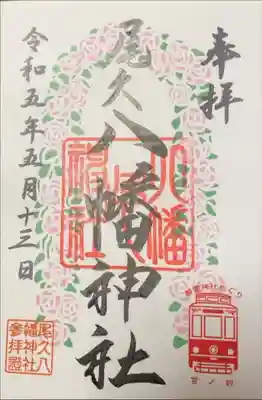 奉拝
尾久八幡神社
八幡神社
令和五年五月十三日
尾久八幡神社参拝證
都電神社めぐり
宮ノ前